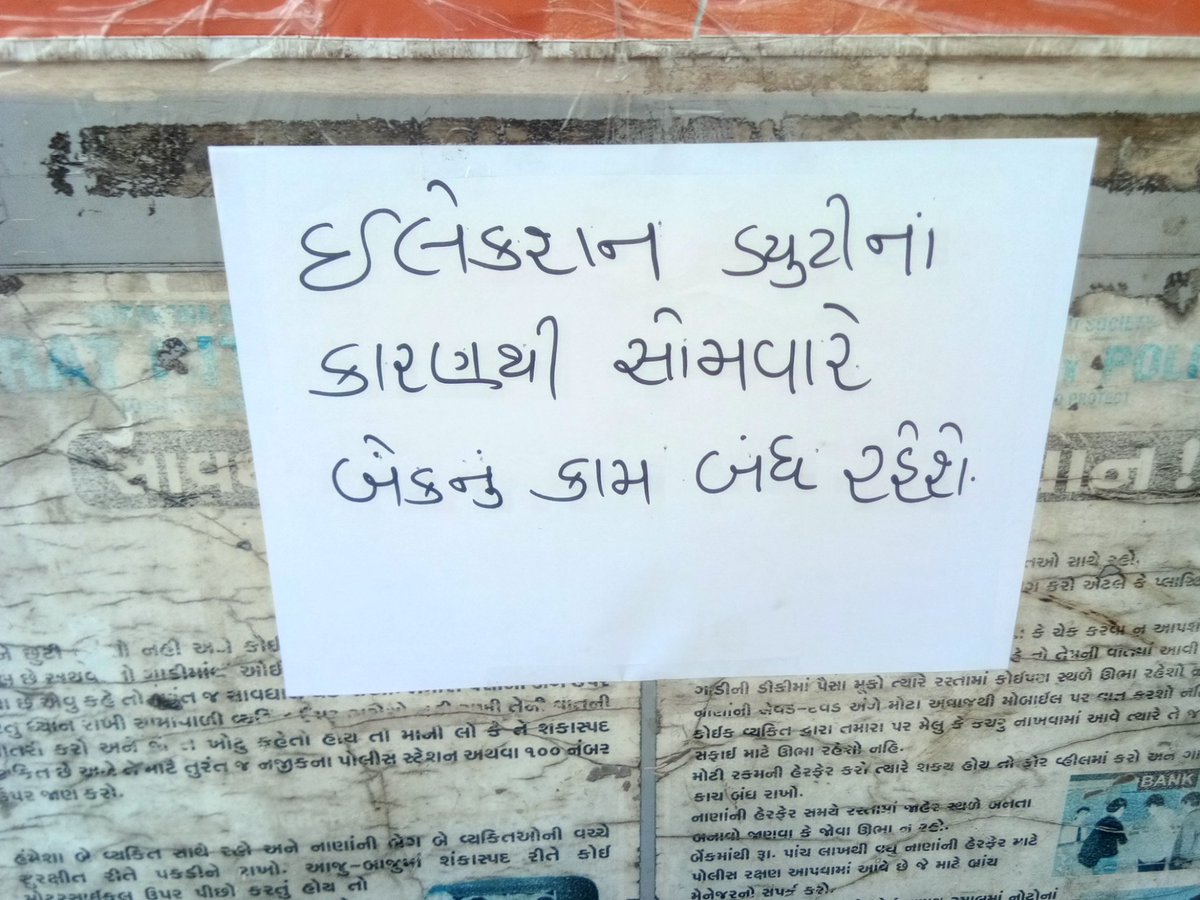 ઈલેકશન ડ્યુટીનાં
કારણથી સોમવારે
બેંકનું કામ બંધ રહેશે.
SOCIETY
POLI
PROTECT
તઓ સાથે રહો.
કરો એટલે કે પ્લાસ્ટિ
કે ચેક કરવા ન આપશ
ગાડીની ડીકીમાં પૈસા મૂકો ત્યારે રસ્તામાં કોઈપણ સ્થળે ઊભા રહેશો
નાણાંની લેવડ-દેવડ અંગે મોટા અવાજથી મોબાઈલ પર વાત કરશો નહી
કોઈક વ્યક્તિ દ્વારા તમારા પર મેલુ કે કચરુ નાખવામાં આવે ત્યારે તે જ
સફાઈ માટે ઊભા રહેશો નહિ.
મોટી રકમની હેરફેર કરો ત્યારે શક્ય હોય તો ફોર વ્હીલમાં કરો અને ગા
કાચ બંધ રાખો.
નાણાંની હેરફેર સમયે રસ્તામાં જાહેર સ્થળે બનતા
બનાવો જાણવા કે જોવા ઊભા ન રહો.
બેંકમાંથી રૂા. પાંચ લાખથી વધુ નાણાંની હેરફેર માટે
પોલીસ રક્ષણ આપવામાં આવે છે જે માટે બ્રાંચ
મેનેજરનો સંપર્ક કરો.
BANK
છુટી નહી અને કોઈ
ગાડીમાં ઓઈ
છે એવુ કહે તો તુરંત જ સાવધા
ધ્યાન રાખી
કરો અને ખોટુ કહેતો હોય તો માની લો કે તે શંકાસ્પદ
છે અને તે માટે તુરંત જ નજીકના પોલીસ સ્ટેશન અથવા ૧૦૦ નંબર
ઉપર જાણ કરો.
હંમેશા બે વ્યકિત સાથે રહો અને નાણાંની બેગ બે વ્યકિતઓની વચ્ચે
સુરક્ષીત રીતે પકડીને રાખો. આજુ-બાજુમાં શંકાસ્પદ રીતે કોઈ
મોટરસાઈકલ ઉપર પીછો કરતું હોય તો